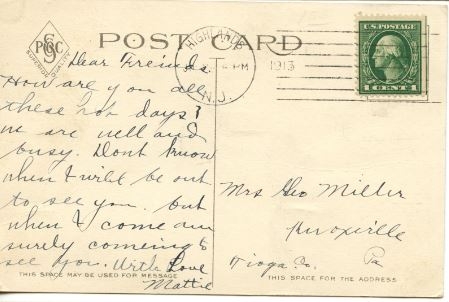 POST CARD
PCC
SUPERIOR QUALITY
HIGHLANDS
PM
N.J.
1913
U.S. POSTAGE
1 CENT 1
Dear Freinds
How are you all
these hot days?
we are well and
busy. Dont know
when I will be out
to see you. but
when I come am
surly comeing to
see you. With Love
Mattie
THIS SPACE MAY BE USED FOR MESSAGE
Mrs Geo Miller
Knoxville
Tioga Co. Pa
THIS SPACE IS FOR THE ADDRESS